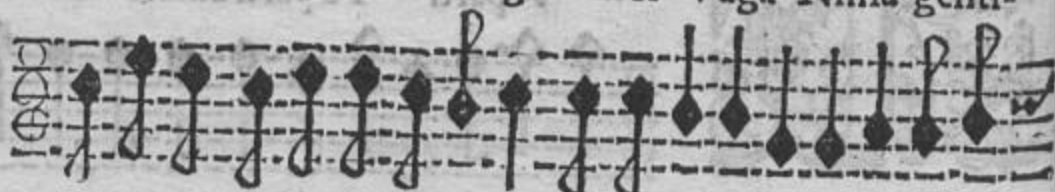 Vaga Ninfa genti-